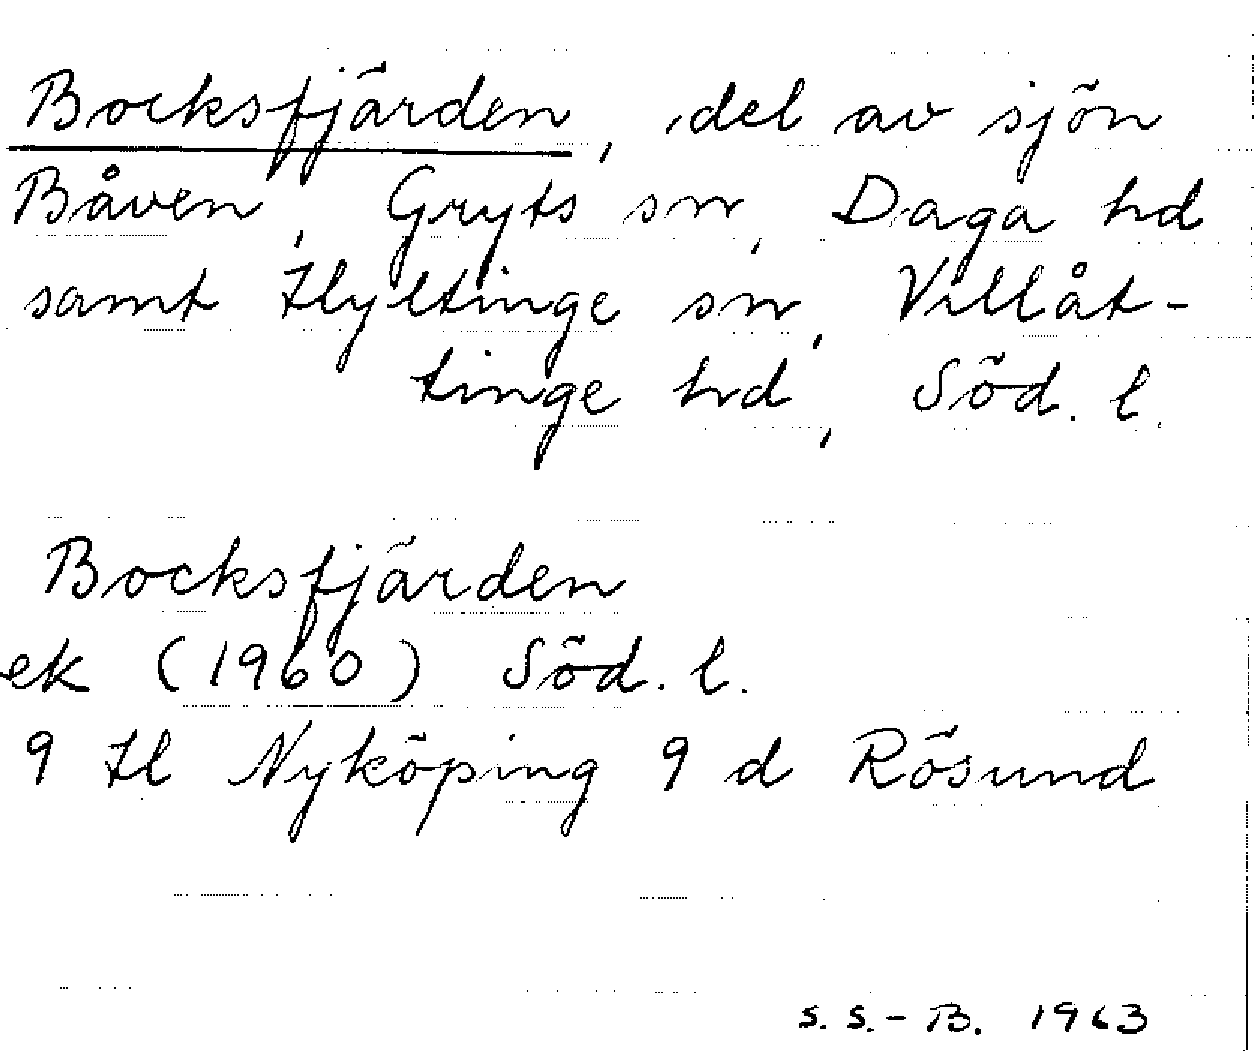 Bocksfjärden, del av sjön
Båven, Gryts sn, Daga hd
samt Hyltinge sn, Villåt-
tinge hd, Söd. l.
Bocksfjärden
ek (1960) Söd. l.
9 H Nyköping 9 d Rösund
S. S.-B. 1963